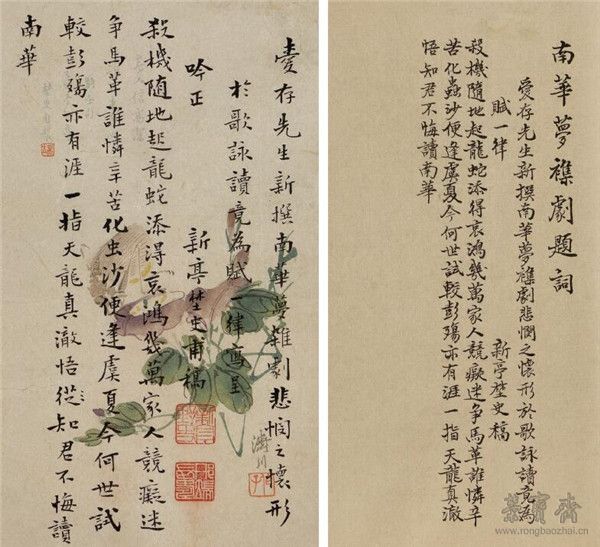 壹存先生新撰南華夢雜劇悲悯之懷形
於歌詠讀竟為賦一律寫呈
吟正
新亭埜史甫稿
殺機隨地起龍蛇添得哀鴻幾萬家人競癡迷
争馬革誰憐辛苦化虫沙便逢虞夏今何世試
較彭殤亦有涯一指天龍真澈悟從知君不悔讀
南華
溥川
南華夢襍劇題詞
愛存先生新撰南華夢襍劇悲憫之懷形於歌詠讀竟為
賦一律
新亭埜史稿
殺機隨地起龍蛇添得哀鴻幾萬家人競癡迷争馬革誰憐辛
苦化蟲沙便逢虞夏今何世試較彭殤亦有涯一指天龍真澈
悟知君不悔讀南華
榮寶齋
www.rongbaozhai.cn